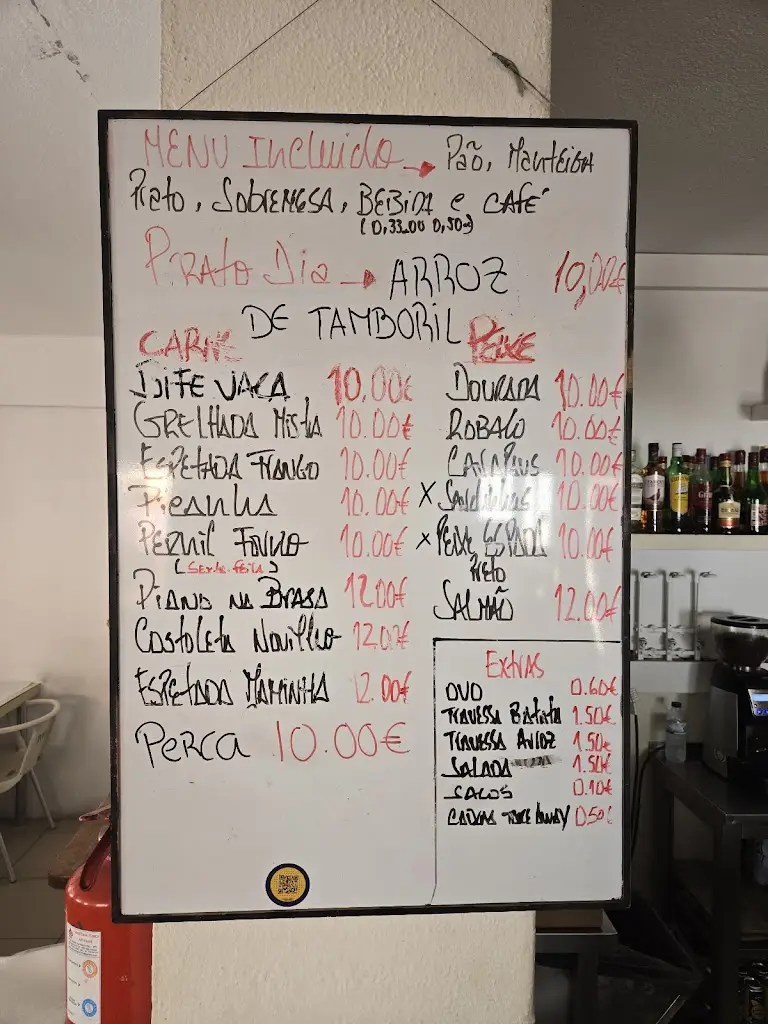 MENU INCLUIDO → PÃO, MANTEIGA
PRATO, SOBREMESA, BEBIDA e CAFÉ
(0,33 OU 0,50)
PRATO DIA → ARROZ 10,00€
DE TAMBORIL
CARNE
BIFE VACA 10.00€
GRELHADA MISTA 10.00€
ESPETADA FRANGO 10.00€
PICANHA 10.00€
PERNIL FORNO 10.00€
(SEXTA-FEIRA)
PIANO NA BRASA 12.00€
COSTOLETA NOVILHO 12.00€
ESPETADA MAMINHA 12.00€
PERCA 10.00€
PEIXE
DOURADA 10.00€
ROBALO 10.00€
CARAPAUS 10.00€
X SARDINHAS 10.00€
X PEIXE ESPADA 10.00€
PRETO
SALMÃO 12.00€
EXTRAS
OVO 0.60€
TRAVESSA BATATA 1.50€
TRAVESSA ARROZ 1.50€
SALADA 1.50€
SACOS 0.10€
CAIXAS TAKE AWAY 0.50€